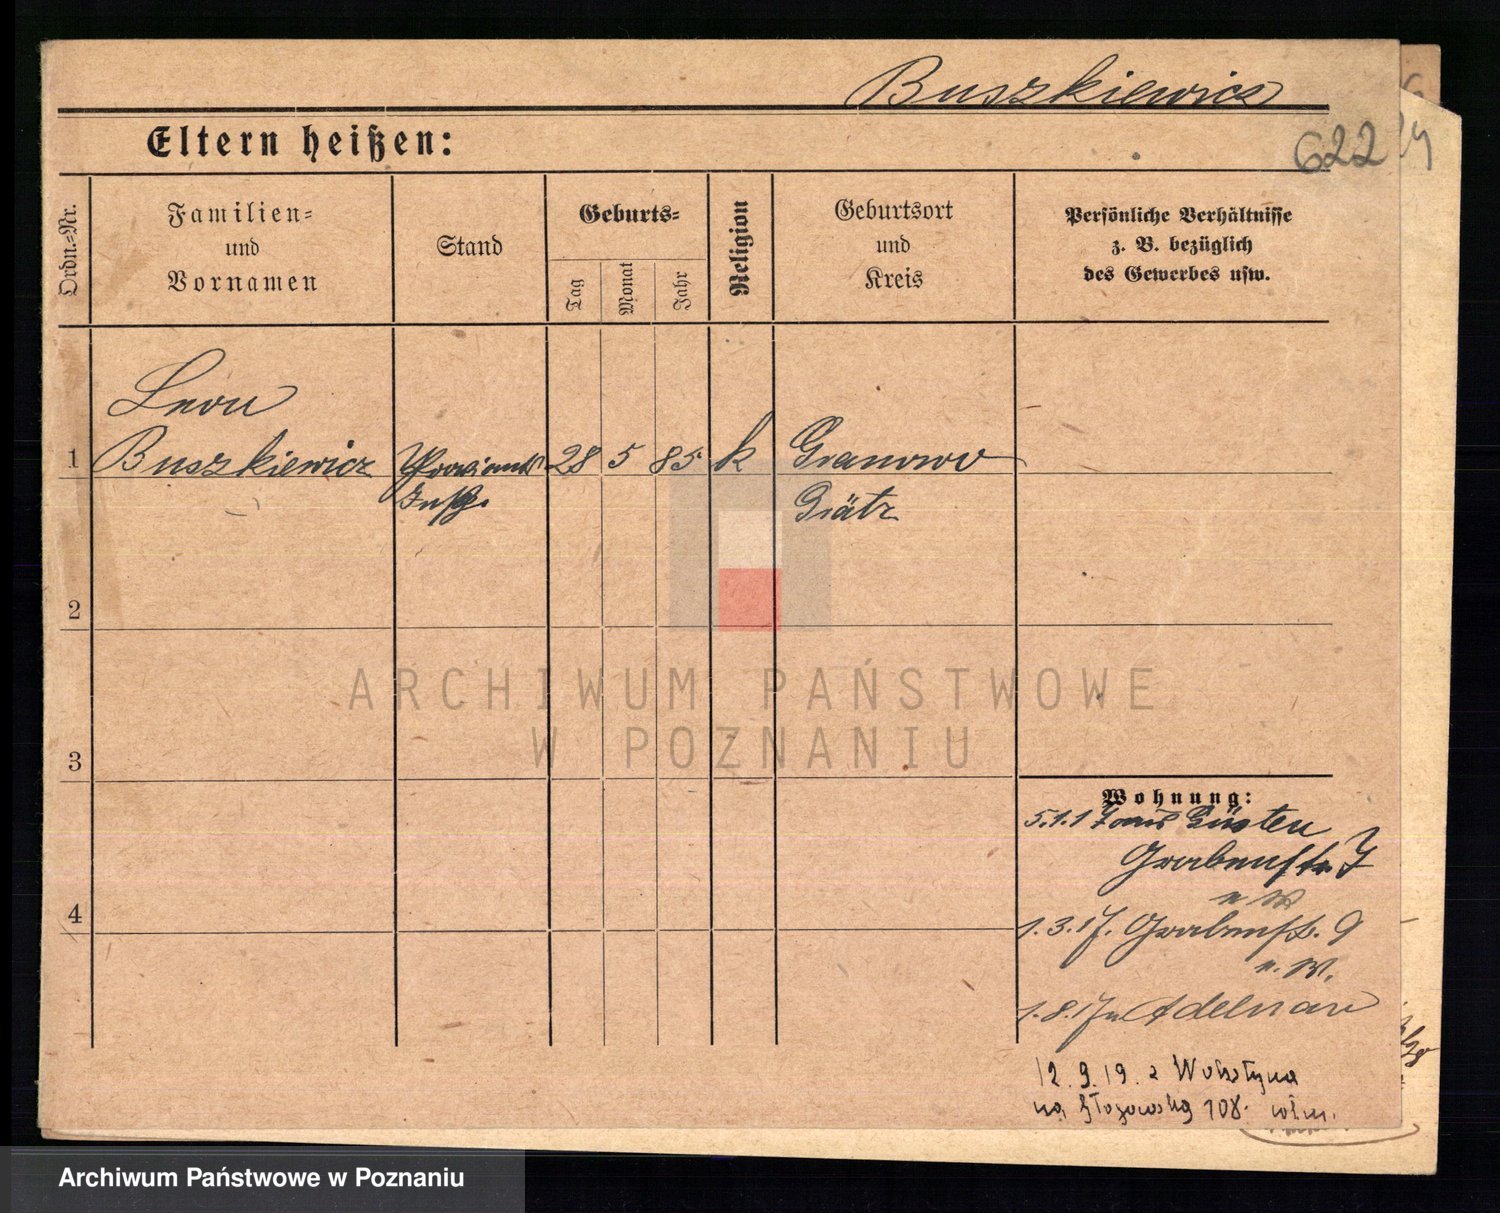 Buszkiewicz
622
Eltern heißen:
Ordn.=Nr.
Familien=
und
Vornamen
Stand
Geburts=
Tag
Monat
Jahr
Religion
Geburtsort
und
Kreis
Persönliche Verhältnisse
z. B. bezüglich
des Gewerbes usw.
Leon
1 Buszkiewicz 28 5 85 k Granowo
Grätz
2
ARCHIWUM PAŃSTWOWE
W POZNANIU
3
Wohnung:
Güsten
Grabenstr. 7
n W
4
1.3.17. Grabenstr. 9
n. W.
1.8.17 n Adelnau
12.9.19. z Wolsztyna
na Głogowską 108.
Archiwum Państwowe w Poznaniu